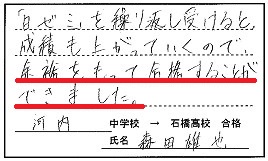 「日ゼミ」を繰り返し受けると、
成績も上がっていくので、
余裕をもって合格することが
できました。
河内 中学校 → 石橋高校 合格
氏名 森田雄也